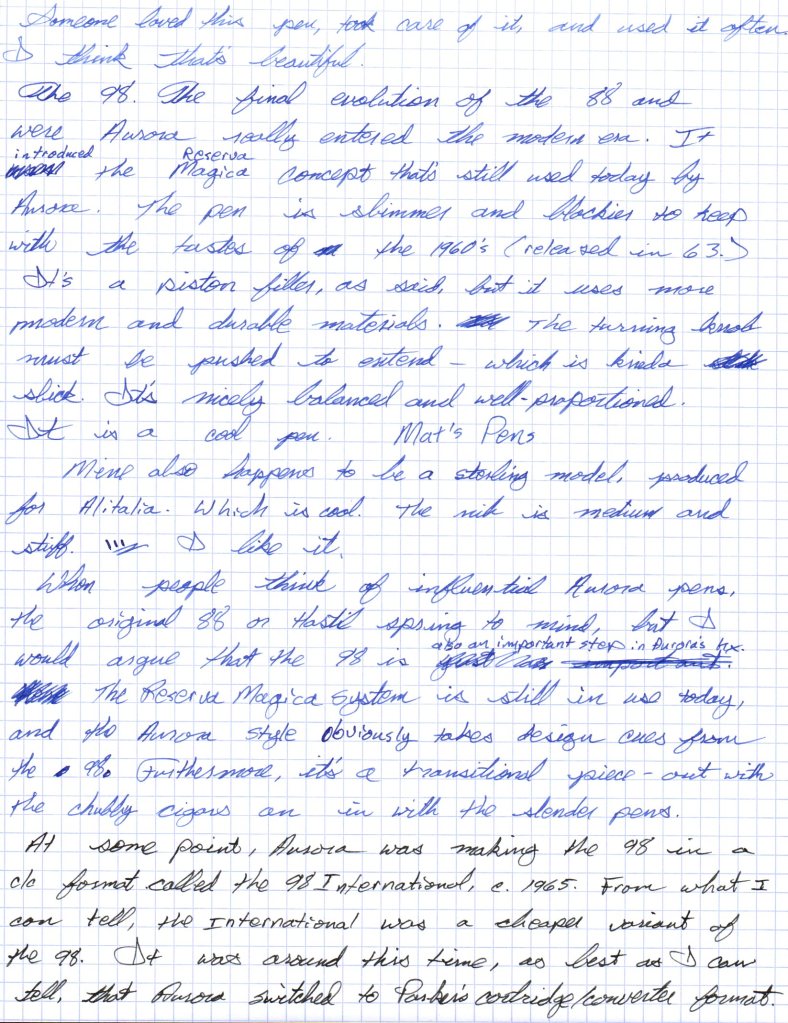 Someone loved this pen, took care of it, and used it often.
I think that's beautiful.
The 98. The final evolution of the 88 and
were Aurora really entered the modern era. It
introduced Reserva
the Magica concept that's still used today by
Aurora. The pen is slimmer and blockier to keep
with the tastes of the 1960's (released in 63.)
It's a piston filler, as said, but it uses more
modern and durable materials. The turning knob
must be pushed to extend – which is kinda
slick. It's nicely balanced and well-proportioned.
It is a cool pen. Mat's Pens
Mine also happens to be a sterling model, produced
for Alitalia. Which is cool. The nib is medium and
stiff. I like it.
When people think of influential Aurora pens,
the original 88 or Hastil spring to mind, but I
also an important step in Aurora's hx.
would argue that the 98 is
The Reserva Magica System is still in use today,
and the Aurora Style obviously takes design cues from
the 98. Furthermore, it's a transitional piece – out with
the chubby cigars an in with the slender pens.
At some point, Aurora was making the 98 in a
c/c format called the 98 International, c. 1965. From what I
can tell, the International was a cheaper variant of
the 98. It was around this time, as best as I can
tell, that Aurora switched to Parker's cartridge/converter format.